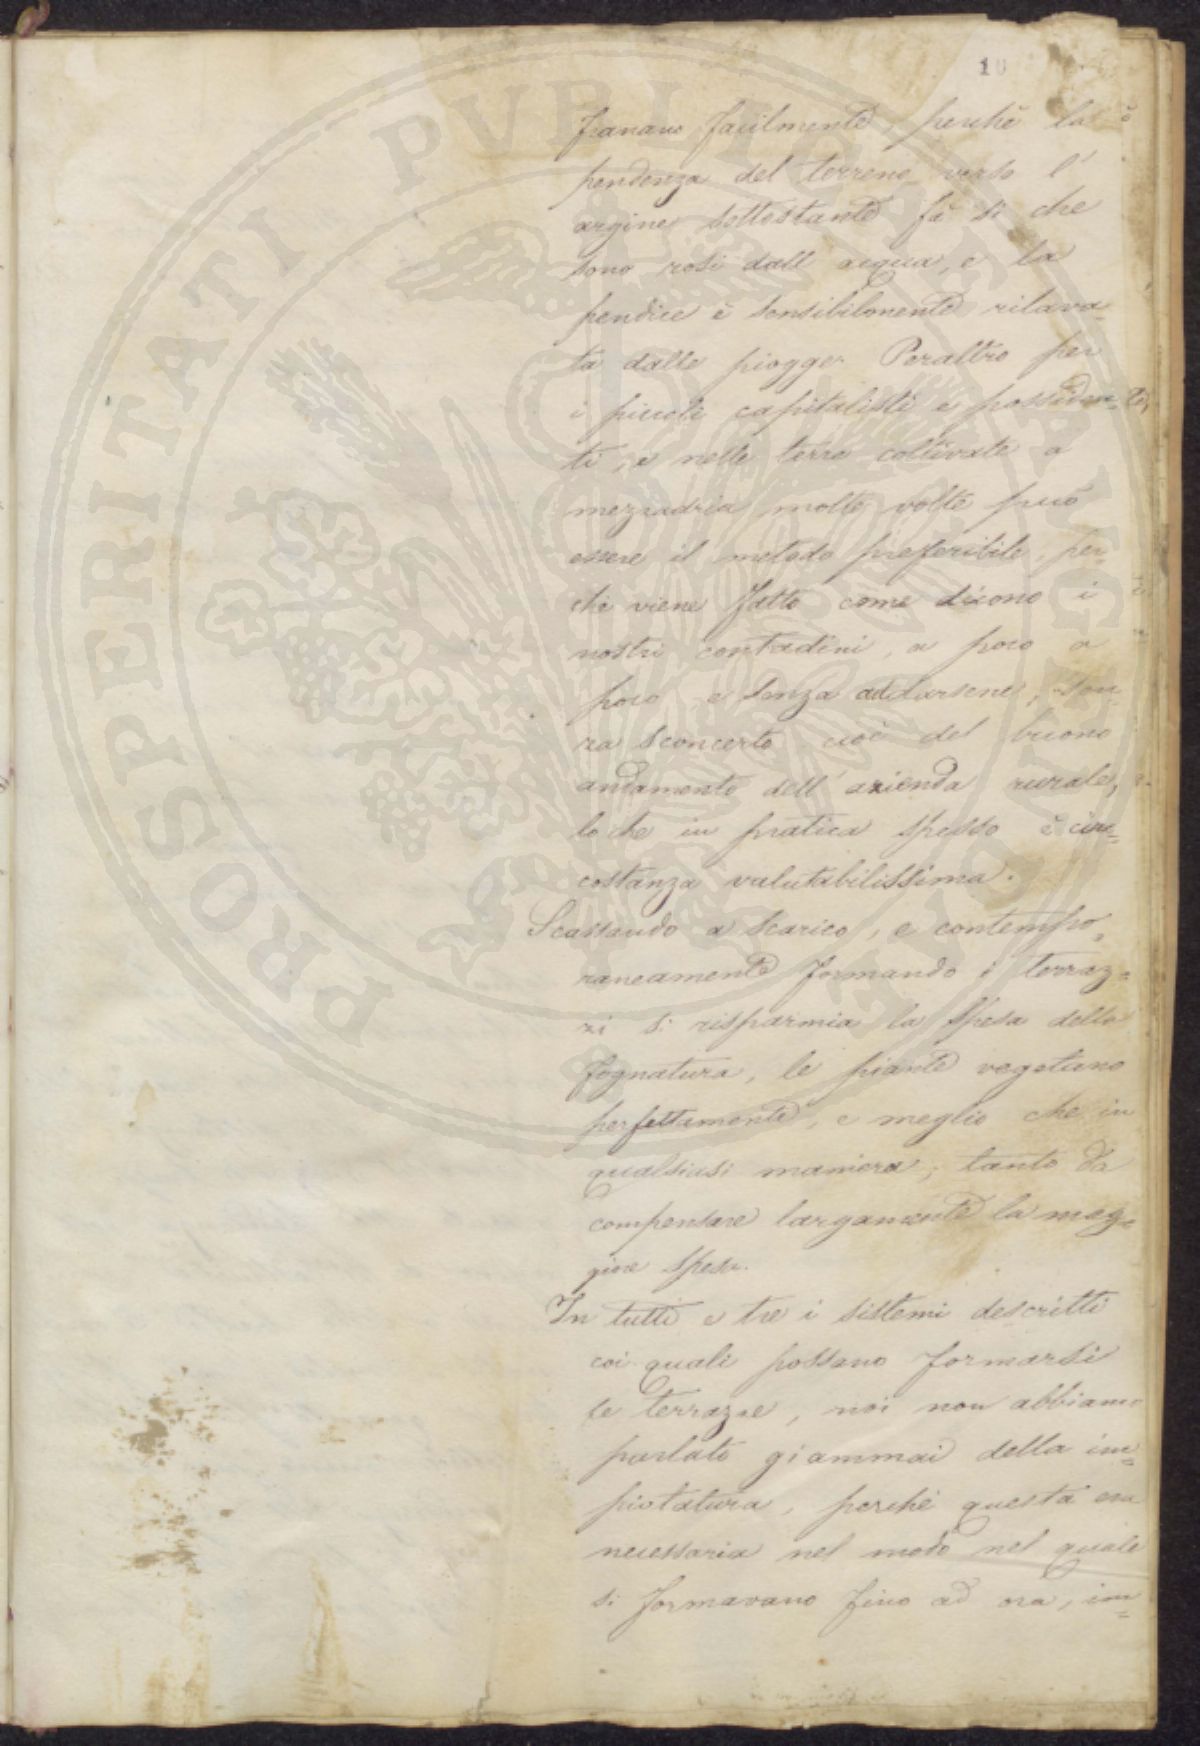 10
franano facilmente, perchè la
pendenza del terreno verso l'
argine sottostante fà si che
sono rosi dall' acqua, e la
pendice è sensibilmente rilava=
ta dalle piogge. Peraltro per
i piccoli capitalisti e possiden=
ti, e nelle terre coltivate a
mezzadria molte volte può
essere il metodo preferibile per
chè viene fatto come dicono i
nostri contadini, a poco a
poco e senza addarsene, sen
za sconcerto cioè del buono
andamento dell' azienda rurale,
lo che in pratica spesso è cir=
costanza valutabilissima.
Scassando a scarico, e contempo=
raneamente formando i terraz=
zi si risparmia la spesa della
fognatura, le piante vegetano
perfettamente, e meglio che in
qualsiasi maniera, tanto da
compensare largamente la mag=
giore spesa.
In tutti e tre i sistemi descritti
coi quali possano formarsi
le terrazze, noi non abbiamo
parlato giammai della im=
piotatura, perchè questa era
necessaria nel modo nel quale
si formavano fino ad ora, im=
PROSPERITATI PUBLICAE AUGENDAE